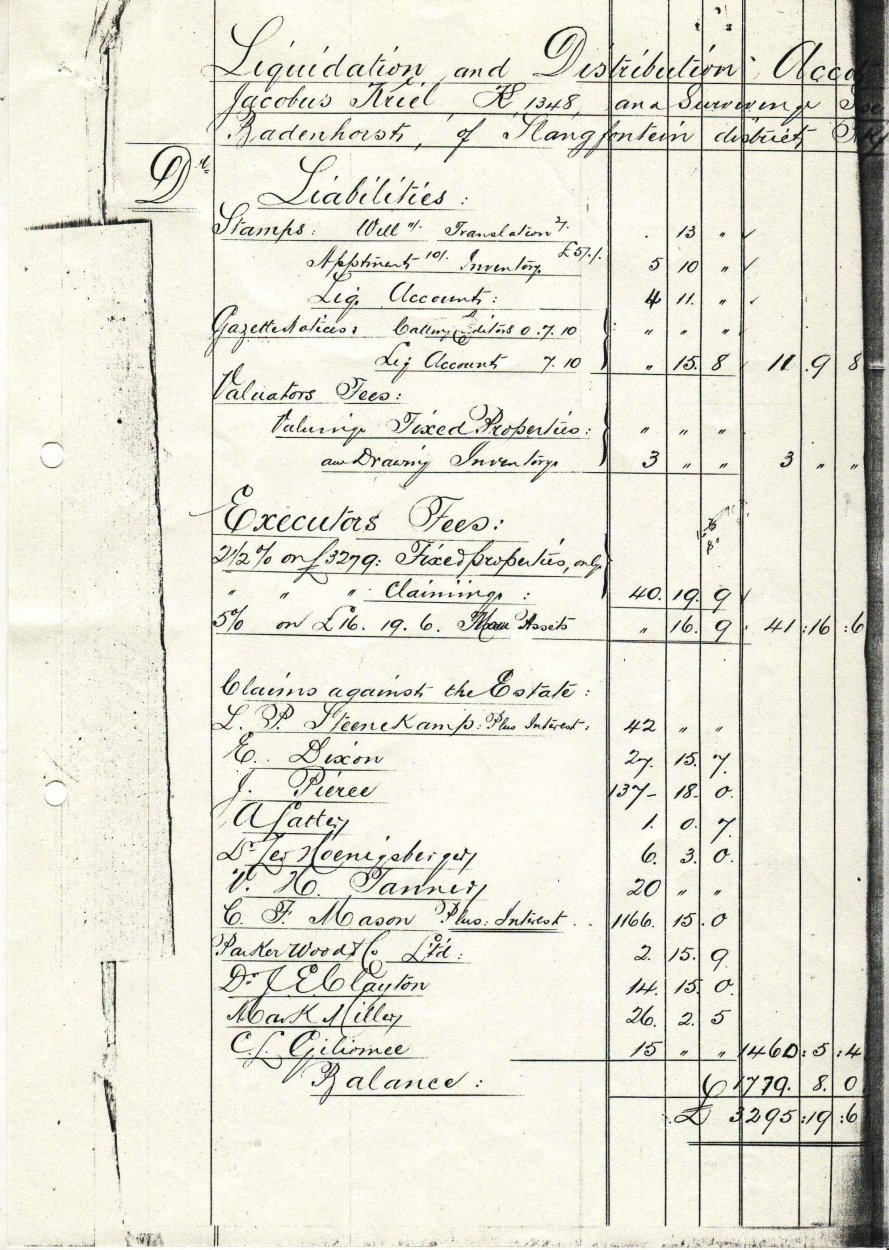 Liquidation and Distribution Acco
Jacobus Kriel K, 1348, and Surviving
Badenhorst, of Slangfontein district,
Dr. Liabilities:
Stamps: Will 11/. Translation 2/. . 13 "
Apptment 10/. Inventory £5/./. 5 10 "
Liq. Accounts: 4 11. "
Gazette Notices: Calling Creditors 0.7.10 " " "
Liq Accounts 7.10 " 15. 8 11 . 9 8
Valuators Fees:
Valuing Fixed Properties: " " "
and Drawing Inventory. 3 " " 3 " "
Executors Fees:
2 1/2 % on £3279: Fixed properties, only
" " " Claiming : 40. 19. 9
5% on £16. 19. 6. Assets " 16. 9 41 :16 :6
Claims against the Estate:
L. P. Steenekamp: Plus Interest: 42 " "
E. Dixon 27. 15. 7.
J. Pierce 137- 18. 0.
A Lattey 1. 0. 7.
Dr Leo Hoenigsberger 6. 3. 0.
V. H. Tanner 20 " "
C. F. Mason Plus: Interest .. 1166. 15. 0
Parker Wood & Co Ltd: 2. 15. 9
Dr J E Clayton 14. 15. 0.
Mark Miller 26. 2. 5
C. L. Giliomee 15 " " 1460 :5 :4
Balance : £ 1779. 8. 0
£ 3295 :19 :6